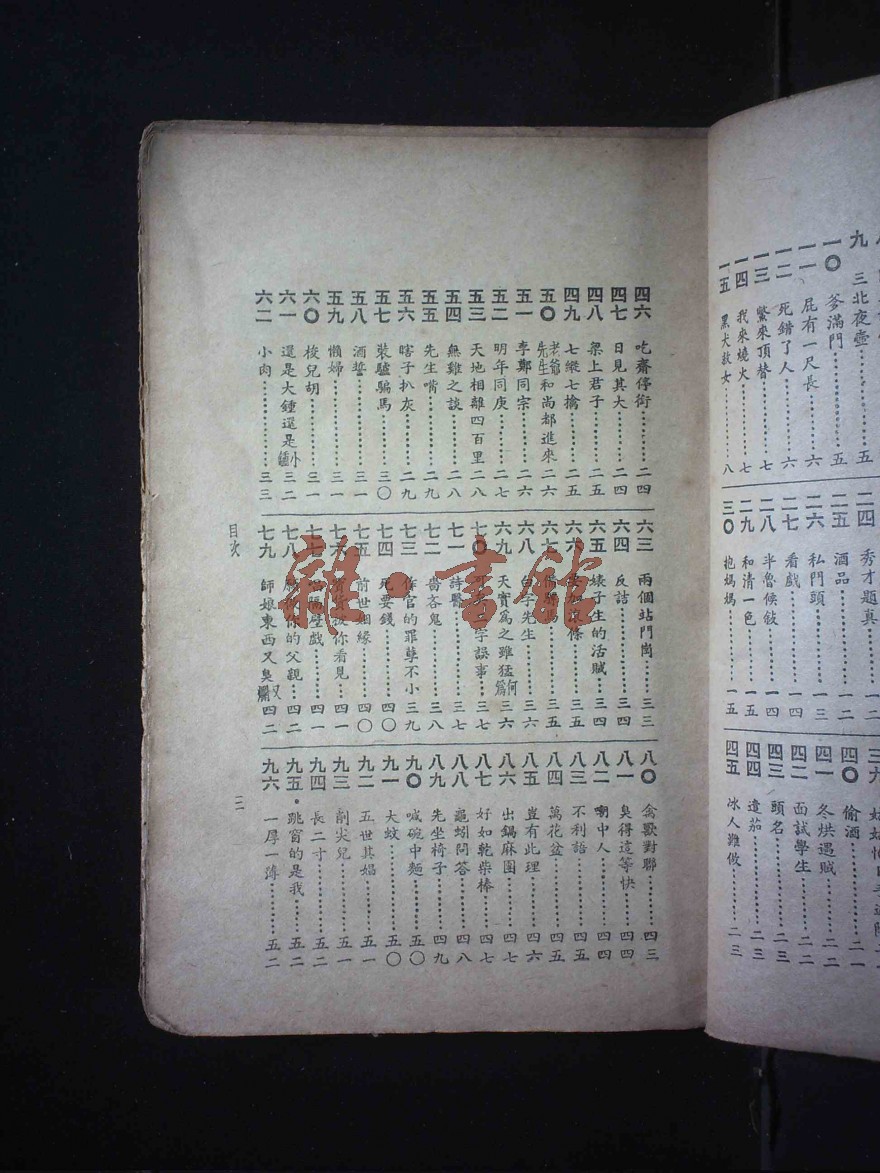 九 三北夜壺…………五
一〇 爹滿門…………五
一一 屁有一尺長…………六
一二 死錯了人…………六
一三 鱉來頂替…………七
一四 我來燒火…………七
一五 黑犬救女…………八
二四 秀才題真…………一二
二五 酒品…………一二
二六 私門頭…………一三
二七 看戲…………一四
二八 半魯候敍…………一四
二九 和清一色…………一五
三〇 抱媽媽…………一五
三九
四〇 偷酒…………二一
四一 冬烘遇賊…………二二
四二 面試學生…………二二
四三 頭名…………二三
四四 遣茄…………二三
四五 冰人難做…………二三
四六 吃齋停銜…………二四
四七 日見其大…………二四
四八 梁上君子…………二五
四九 七縱七擒…………二五
五〇 老爺先生和尚都進來…………二六
五一 李鄭同宗…………二六
五二 明年同庚…………二七
五三 天地相離四百里…………二八
五四 無雞之談…………二八
五五 先生嘴…………二九
五六 瞎子扒灰…………二九
五七 裝驢騙馬…………三〇
五八 酒誓…………三一
五九 懶婦…………三一
六〇 梭兒胡…………三一
六一 還是大鍾還是小鍾…………三二
六二 小肉…………三三
六三 兩個站門崗…………三三
六四 反詰…………三四
六五 婊子生的活賊…………三四
六六 條…………三五
六七 媽…………三五
六八 白字先生…………三六
六九 天實爲之雖猛何爲…………三六
七〇 字誤事…………三七
七一 詩醫…………三七
七二 嗇吝鬼…………三八
七三 作官的罪孽不小…………三九
七四 死要錢…………四〇
七五 前世姻緣…………四〇
七六 你看見…………四一
七七 隔壁戲…………四一
七八 你的父親…………四二
七九 師娘東西又臭又爛…………四二
八〇 禽獸對聯…………四三
八一 臭得這等快…………四四
八二 啣中人…………四四
八三 不利語…………四五
八四 萬花盆…………四五
八五 豈有此理…………四六
八六 出鍋麻團…………四七
八七 好如乾柴棒…………四七
八八 龜蚓問答…………四八
八九 先坐椅子…………四九
九〇 喊碗中麵…………五〇
九一 大蚊…………五〇
九二 五世其娼…………五一
九三 削尖兒…………五一
九四 長二寸…………五二
九五 跳窗的是我…………五二
九六 一厚一薄…………五二
目次
三
雜·書館